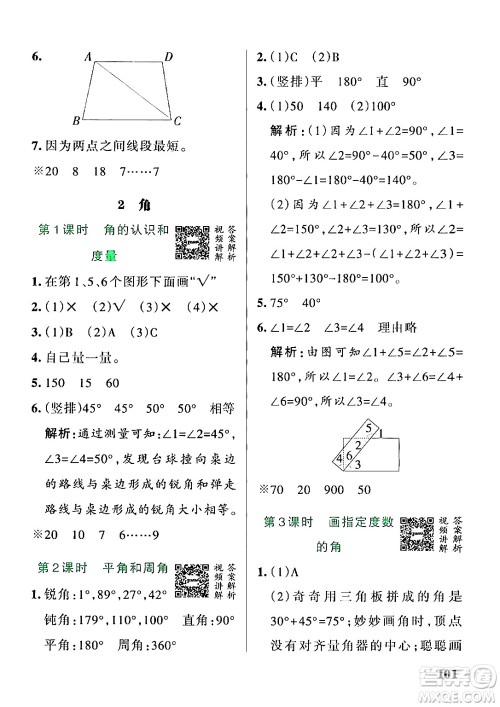 6.
A
D
B
C
7. 因为两点之间线段最短。
※20 8 18 7……7
2 角
第1课时 角的认识和
度量
视频讲解
答案解析
1. 在第1、5、6个图形下面画“√”
2. (1)× (2)√ (3)× (4)×
3. (1)B (2)A (3)B (4)C
4. 自己量一量。
5. 30 15 60
6. (竖排)45° 45° 50° 50° 相等
解析:通过测量可知:∠1=∠2,
∠3=∠4=50°,台球撞向桌边
的路线与桌边形成的锐角和弹走
路线与桌边形成的锐角大小相等。
※20 70 22 6……9
第2课时 平角和周角
视频讲解
答案解析
1. 锐角:1°,89°,27°,32°
钝角:179°,110°,100° 直角:90°
平角:180° 周角:360°
2. (1)C (2)B
3. (竖排)平 180° 直 90°
4. (1)50 140 (2)100°
解析:(1)因为∠1=90°,∠1=
40°,所以∠1=90°-∠1=90°-
40°=50°。因为∠1+∠2=
180°,∠1=40°,所以∠2=
180°-∠1=180°-40°=140°。
(2)因为∠1=130°,∠1+∠2=
180°,所以∠2=180°-∠1=
180°-130°=50°,所以∠1+
∠2=50°+50°=100°。
5. 75° 40°
6. ∠1=∠2 ∠3=∠4 理由略
解析:由图可知,∠1+∠5=
90°,∠2+∠5=90°,所以∠1=
∠2。因为∠3+∠6=90°,∠4+
∠6=90°,所以∠3=∠4。
5
1
2
4
6
3
※70 20 900 50
第3课时 画指定度数
的角
视频讲解
答案解析
1. (1)A
(2)奇奇用三角板拼成的角是
30°+45°=75°;妙妙画角时,顶点
没有对齐量角器的中心;聪聪画
101